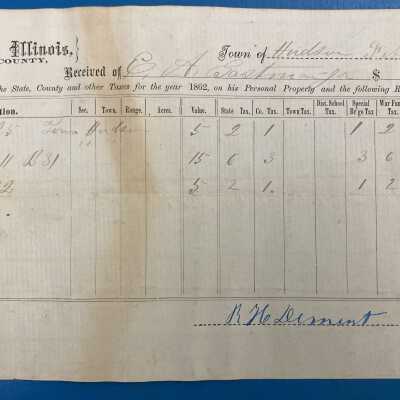 Illinois,
COUNTY,
Town of Hudson
Received of C. A. $
the State, County and other Taxes for the year 1862, on his Personal Property and the following R
tion. Sec. Town. Range. Acres. Value. State Tax. Co. Tax. Town Tax. Dist. School Tax. Special Ro'ge Tax. War Fund Tax.
5 Town Hudson 5 2 1. 1 2
11 B31 15 6 3 3 6
2 5 2 1. 1 2
R H Dement